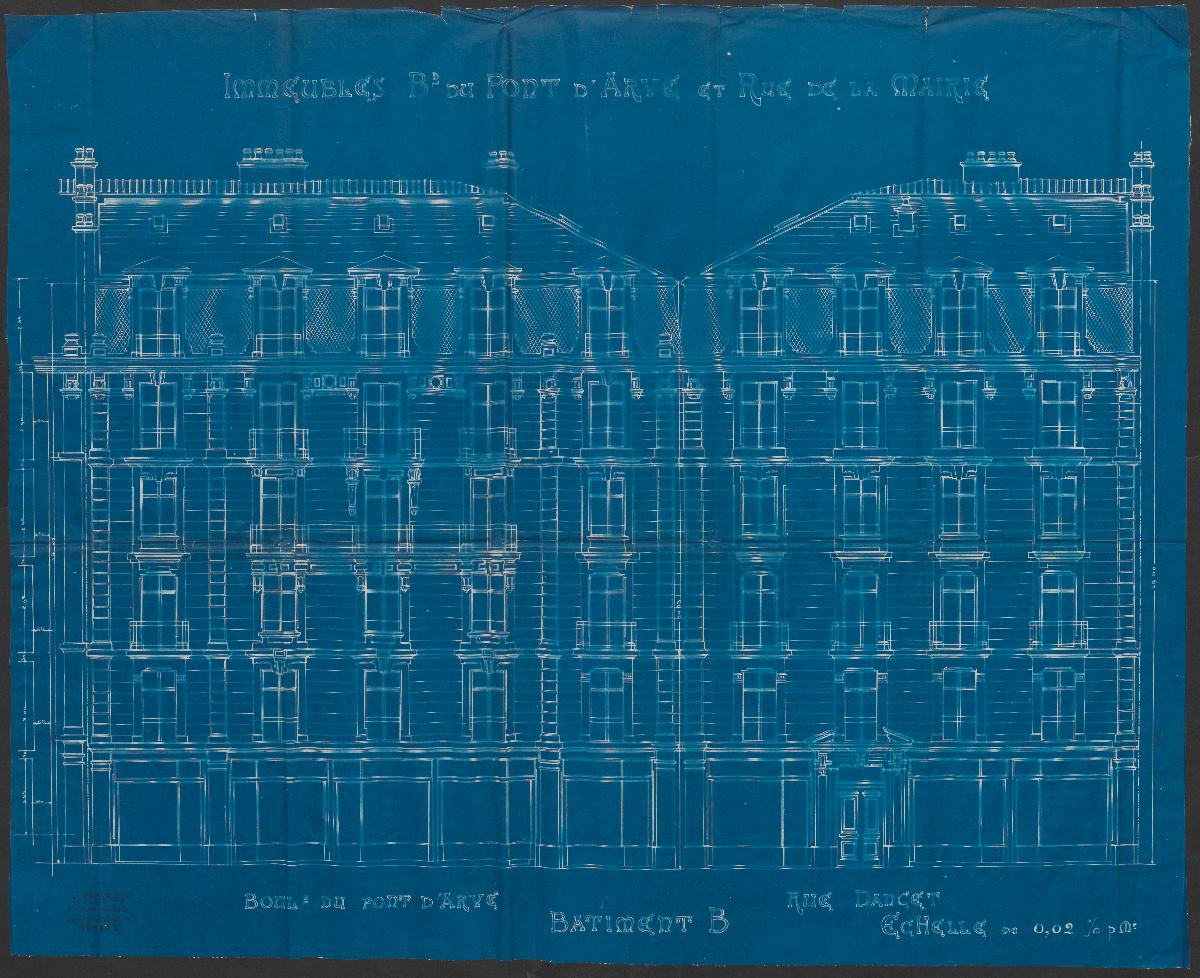 Immeubles Bd du Pont d'Arve et Rue de la Mairie
Boul.d du pont d'Arve
Rue Dancet
Batiment B
Echelle de 0,02 % p Me